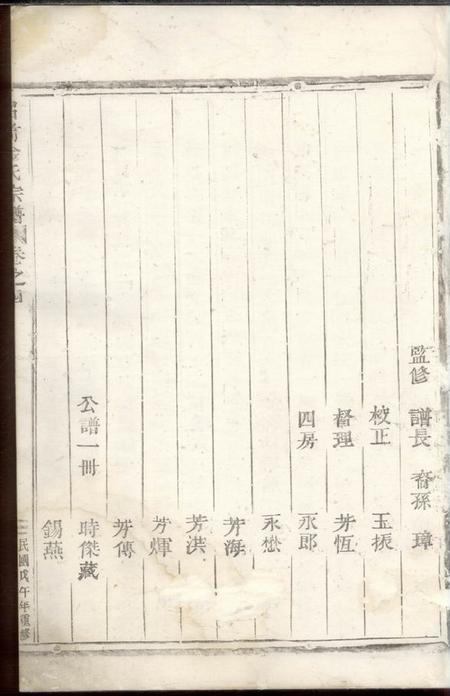 監修 譜長 裔孫 璋
校正 玉振
督理 芳恆
四房 永郎
永懋
芳海
芳洪
芳輝
芳傳
公譜一冊 時傑藏
錫燕
氏宗譜 卷之四
民國戊午年重修